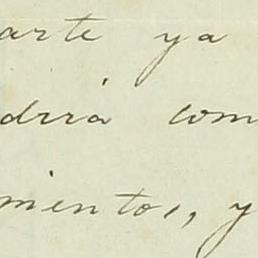 arte ya
drrá com
mientos, y